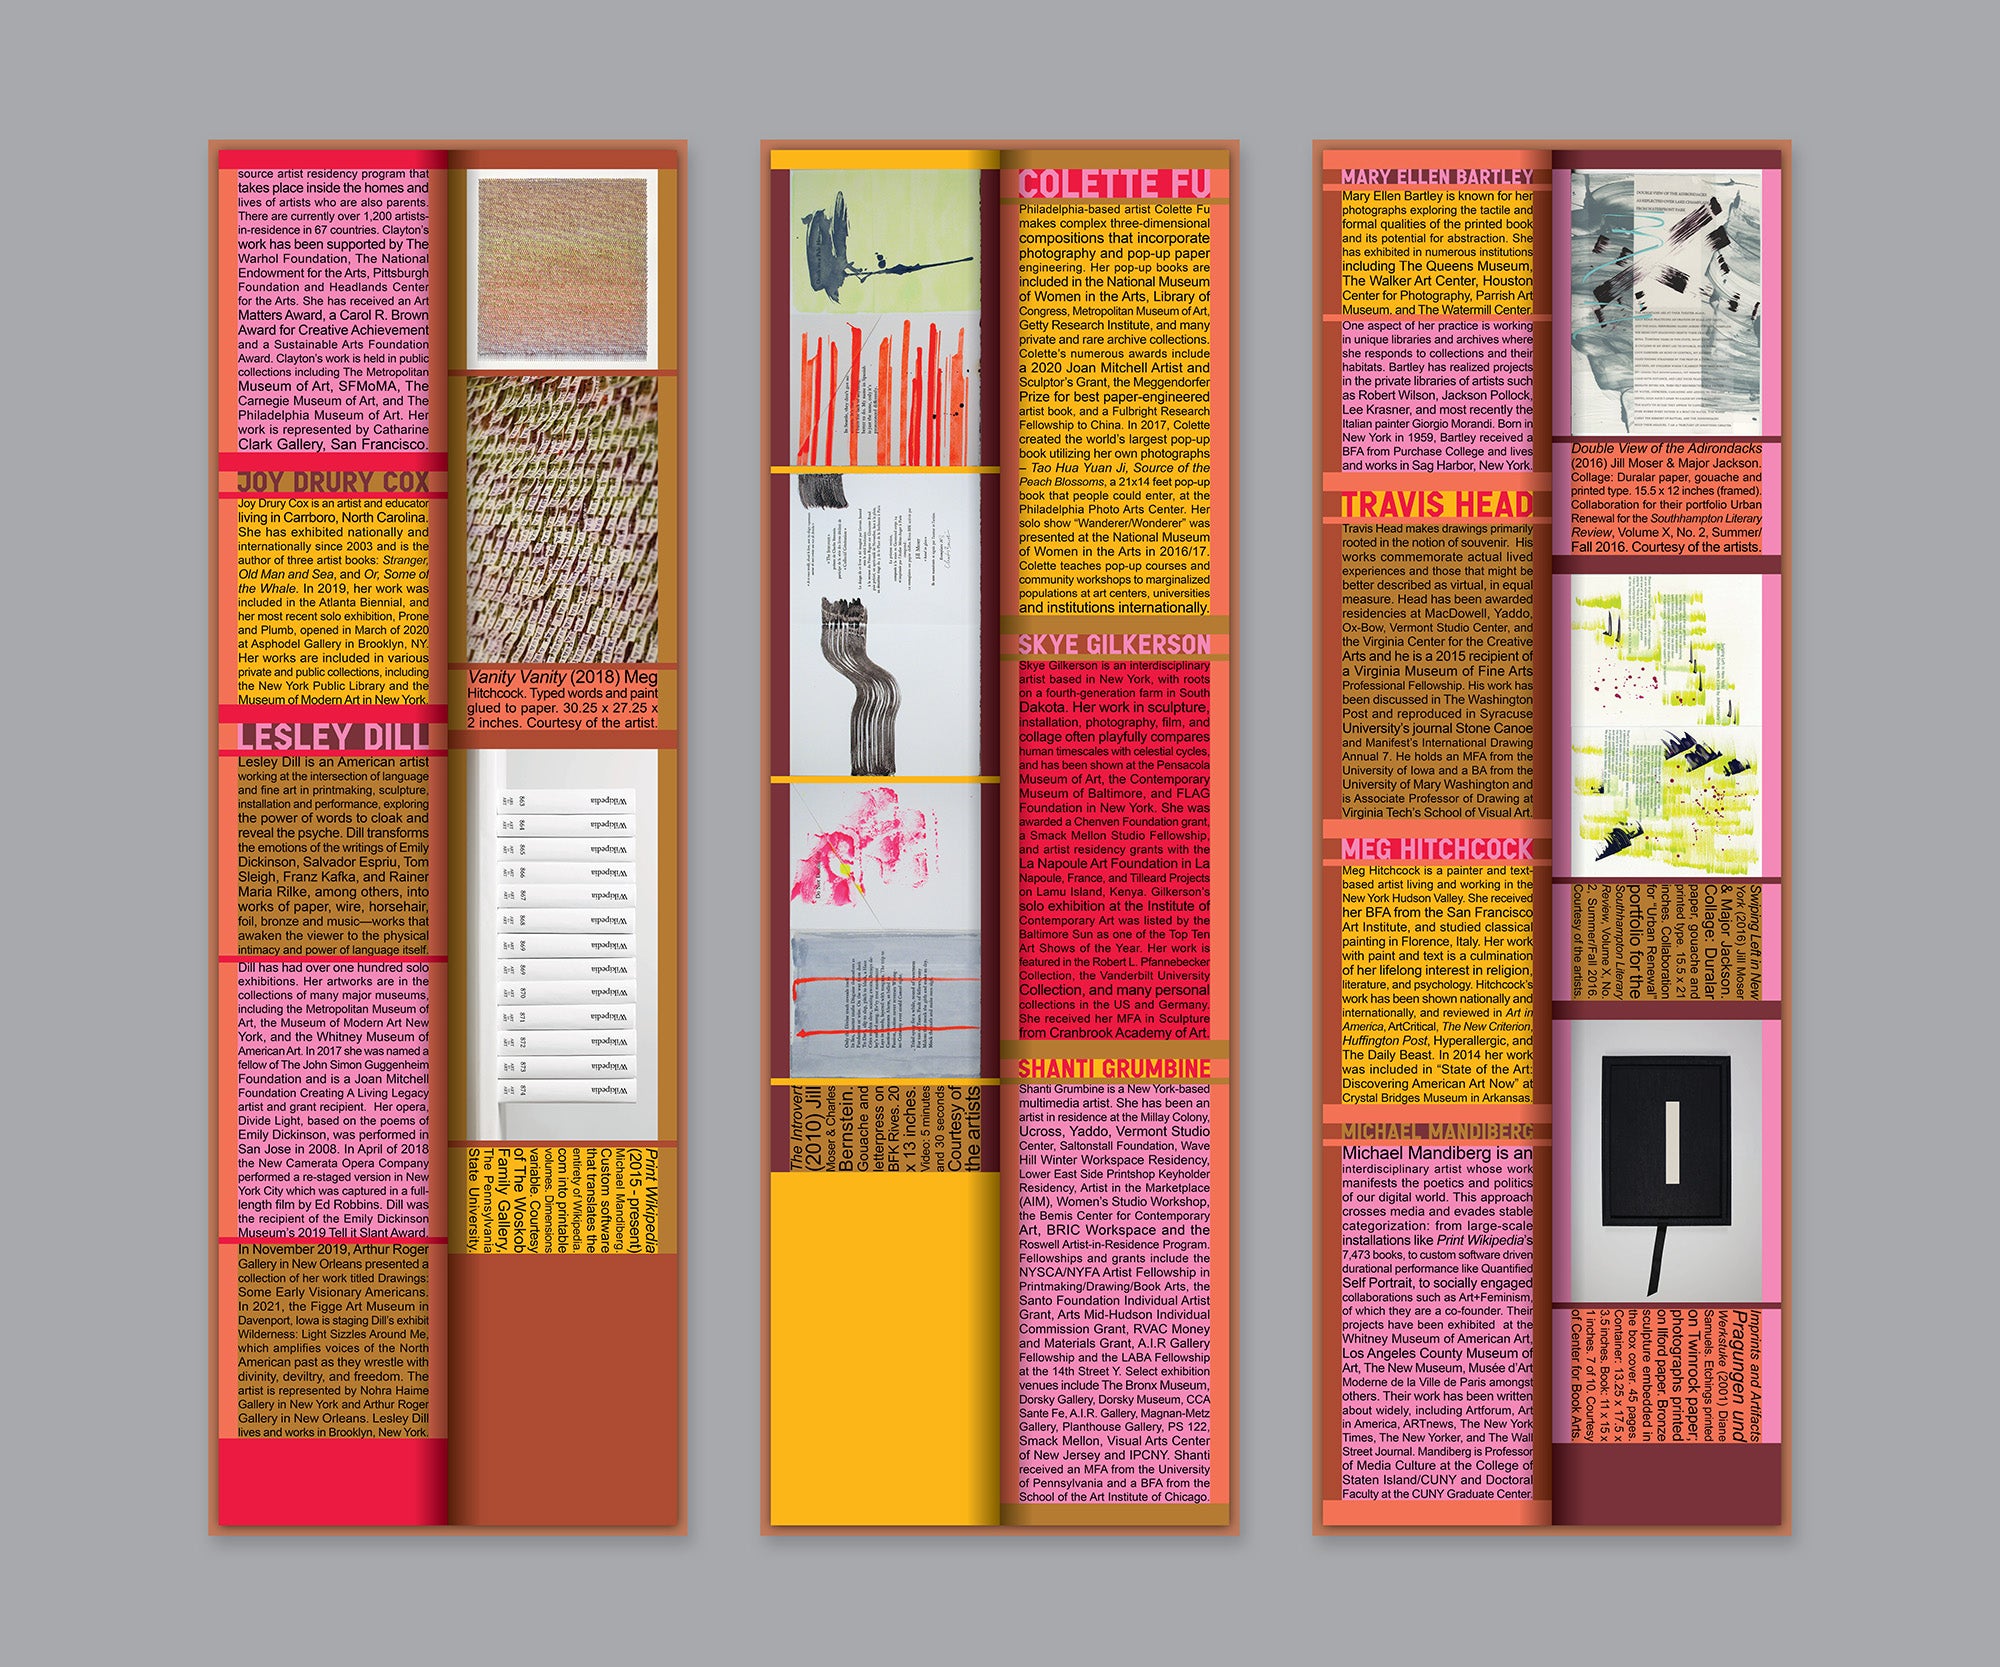 source artist residency program that
takes place inside the homes and
lives of artists who are also parents.
There are currently over 1,200 artists-
in-residence in 67 countries. Clayton's
work has been supported by The
Warhol Foundation, The National
Endowment for the Arts, Pittsburgh
Foundation and Headlands Center
for the Arts. She has received an Art
Matters Award, a Carol R. Brown
Award for Creative Achievement
and a Sustainable Arts Foundation
Award. Clayton's work is held in public
collections including The Metropolitan
Museum of Art, SFMoMA, The
Carnegie Museum of Art, and The
Philadelphia Museum of Art. Her
work is represented by Catharine
Clark Gallery, San Francisco.
JOY DRURY COX
Joy Drury Cox is an artist and educator
living in Carrboro, North Carolina.
She has exhibited nationally and
internationally since 2003 and is the
author of three artist books: Stranger,
Old Man and Sea, and Or, Some of
the Whale. In 2019, her work was
included in the Atlanta Biennial, and
her most recent solo exhibition, Prone
and Plumb, opened in March of 2020
at Asphodel Gallery in Brooklyn, NY.
Her works are included in various
private and public collections, including
the New York Public Library and the
Museum of Modern Art in New York.
LESLEY DILL
Lesley Dill is an American artist
working at the intersection of language
and fine art in printmaking, sculpture,
installation and performance, exploring
the power of words to cloak and
reveal the psyche. Dill transforms
the emotions of the writings of Emily
Dickinson, Salvador Espriu, Tom
Sleigh, Franz Kafka, and Rainer
Maria Rilke, among others, into
works of paper, wire, horsehair,
foil, bronze and music—works that
awaken the viewer to the physical
intimacy and power of language itself.
Dill has had over one hundred solo
exhibitions. Her artworks are in the
collections of many major museums,
including the Metropolitan Museum of
Art, the Museum of Modern Art New
York, and the Whitney Museum of
American Art. In 2017 she was named a
fellow of The John Simon Guggenheim
Foundation and is a Joan Mitchell
Foundation Creating A Living Legacy
artist and grant recipient. Her opera,
Divide Light, based on the poems of
Emily Dickinson, was performed in
San Jose in 2008. In April of 2018
the New Camerata Opera Company
performed a re-staged version in New
York City which was captured in a full-
length film by Ed Robbins. Dill was
the recipient of the Emily Dickinson
Museum's 2019 Tell it Slant Award.
In November 2019, Arthur Roger
Gallery in New Orleans presented a
collection of her work titled Drawings:
Some Early Visionary Americans.
In 2021, the Figge Art Museum in
Davenport, Iowa is staging Dill's exhibit
Wilderness: Light Sizzles Around Me,
which amplifies voices of the North
American past as they wrestle with
divinity, deviltry, and freedom. The
artist is represented by Nohra Haime
Gallery in New York and Arthur Roger
Gallery in New Orleans. Lesley Dill
lives and works in Brooklyn, New York.
Vanity Vanity (2018) Meg
Hitchcock. Typed words and paint
glued to paper. 30.25 x 27.25 x
2 inches. Courtesy of the artist.
Wikipedia 863
Wikipedia 864
Wikipedia 865
Wikipedia 866
Wikipedia 867
Wikipedia 868
Wikipedia 869
Wikipedia 869
Wikipedia 870
Wikipedia 871
Wikipedia 872
Wikipedia 873
Wikipedia 874
Print Wikipedia
(2015 - present)
Michael Mandiberg.
Custom software
that translates the
entirety of Wikipedia.
com into printable
volumes. Dimensions
variable. Courtesy
of The Woskob
Family Gallery,
The Pennsylvania
State University.
The Introvert
(2010) Jill
Moser & Charles
Bernstein.
Gouache and
letterpress on
BFK Rives. 20
x 13 inches.
Video: 5 minutes
and 30 seconds
Courtesy of
the artists
COLETTE FU
Philadelphia-based artist Colette Fu
makes complex three-dimensional
compositions that incorporate
photography and pop-up paper
engineering. Her pop-up books are
included in the National Museum
of Women in the Arts, Library of
Congress, Metropolitan Museum of Art,
Getty Research Institute, and many
private and rare archive collections.
Colette's numerous awards include
a 2020 Joan Mitchell Artist and
Sculptor's Grant, the Meggendorfer
Prize for best paper-engineered
artist book, and a Fulbright Research
Fellowship to China. In 2017, Colette
created the world's largest pop-up
book utilizing her own photographs
– Tao Hua Yuan Ji, Source of the
Peach Blossoms, a 21x14 feet pop-up
book that people could enter, at the
Philadelphia Photo Arts Center. Her
solo show "Wanderer/Wonderer" was
presented at the National Museum
of Women in the Arts in 2016/17.
Colette teaches pop-up courses and
community workshops to marginalized
populations at art centers, universities
and institutions internationally.
SKYE GILKERSON
Skye Gilkerson is an interdisciplinary
artist based in New York, with roots
on a fourth-generation farm in South
Dakota. Her work in sculpture,
installation, photography, film, and
collage often playfully compares
human timescales with celestial cycles,
and has been shown at the Pensacola
Museum of Art, the Contemporary
Museum of Baltimore, and FLAG
Foundation in New York. She was
awarded a Chenven Foundation grant,
a Smack Mellon Studio Fellowship,
and artist residency grants with the
La Napoule Art Foundation in La
Napoule, France, and Tilleard Projects
on Lamu Island, Kenya. Gilkerson's
solo exhibition at the Institute of
Contemporary Art was listed by the
Baltimore Sun as one of the Top Ten
Art Shows of the Year. Her work is
featured in the Robert L. Pfannebecker
Collection, the Vanderbilt University
Collection, and many personal
collections in the US and Germany.
She received her MFA in Sculpture
from Cranbrook Academy of Art.
SHANTI GRUMBINE
Shanti Grumbine is a New York-based
multimedia artist. She has been an
artist in residence at the Millay Colony,
Ucross, Yaddo, Vermont Studio
Center, Saltonstall Foundation, Wave
Hill Winter Workspace Residency,
Lower East Side Printshop Keyholder
Residency, Artist in the Marketplace
(AIM), Women's Studio Workshop,
the Bemis Center for Contemporary
Art, BRIC Workspace and the
Roswell Artist-in-Residence Program.
Fellowships and grants include the
NYSCA/NYFA Artist Fellowship in
Printmaking/Drawing/Book Arts, the
Santo Foundation Individual Artist
Grant, Arts Mid-Hudson Individual
Commission Grant, RVAC Money
and Materials Grant, A.I.R Gallery
Fellowship and the LABA Fellowship
at the 14th Street Y. Select exhibition
venues include The Bronx Museum,
Dorsky Gallery, Dorsky Museum, CCA
Sante Fe, A.I.R. Gallery, Magnan-Metz
Gallery, Planthouse Gallery, PS 122,
Smack Mellon, Visual Arts Center
of New Jersey and IPCNY. Shanti
received an MFA from the University
of Pennsylvania and a BFA from the
School of the Art Institute of Chicago.
MARY ELLEN BARTLEY
Mary Ellen Bartley is known for her
photographs exploring the tactile and
formal qualities of the printed book
and its potential for abstraction. She
has exhibited in numerous institutions
including The Queens Museum,
The Walker Art Center, Houston
Center for Photography, Parrish Art
Museum. and The Watermill Center.
One aspect of her practice is working
in unique libraries and archives where
she responds to collections and their
habitats. Bartley has realized projects
in the private libraries of artists such
as Robert Wilson, Jackson Pollock,
Lee Krasner, and most recently the
Italian painter Giorgio Morandi. Born in
New York in 1959, Bartley received a
BFA from Purchase College and lives
and works in Sag Harbor, New York.
TRAVIS HEAD
Travis Head makes drawings primarily
rooted in the notion of souvenir. His
works commemorate actual lived
experiences and those that might be
better described as virtual, in equal
measure. Head has been awarded
residencies at MacDowell, Yaddo,
Ox-Bow, Vermont Studio Center, and
the Virginia Center for the Creative
Arts and he is a 2015 recipient of
a Virginia Museum of Fine Arts
Professional Fellowship. His work has
been discussed in The Washington
Post and reproduced in Syracuse
University's journal Stone Canoe
and Manifest's International Drawing
Annual 7. He holds an MFA from the
University of Iowa and a BA from the
University of Mary Washington and
is Associate Professor of Drawing at
Virginia Tech's School of Visual Art.
MEG HITCHCOCK
Meg Hitchcock is a painter and text-
based artist living and working in the
New York Hudson Valley. She received
her BFA from the San Francisco
Art Institute, and studied classical
painting in Florence, Italy. Her work
with paint and text is a culmination
of her lifelong interest in religion,
literature, and psychology. Hitchcock's
work has been shown nationally and
internationally, and reviewed in Art in
America, ArtCritical, The New Criterion,
Huffington Post, Hyperallergic, and
The Daily Beast. In 2014 her work
was included in "State of the Art:
Discovering American Art Now" at
Crystal Bridges Museum in Arkansas.
MICHAEL MANDIBERG
Michael Mandiberg is an
interdisciplinary artist whose work
manifests the poetics and politics
of our digital world. This approach
crosses media and evades stable
categorization: from large-scale
installations like Print Wikipedia's
7,473 books, to custom software driven
durational performance like Quantified
Self Portrait, to socially engaged
collaborations such as Art+Feminism,
of which they are a co-founder. Their
projects have been exhibited at the
Whitney Museum of American Art,
Los Angeles County Museum of
Art, The New Museum, Musée d'Art
Moderne de la Ville de Paris amongst
others. Their work has been written
about widely, including Artforum, Art
in America, ARTnews, The New York
Times, The New Yorker, and The Wall
Street Journal. Mandiberg is Professor
of Media Culture at the College of
Staten Island/CUNY and Doctoral
Faculty at the CUNY Graduate Center.
DOUBLE VIEW OF THE ADIRONDACKS
AS REFLECTED OVER LAKE CHAMPLAIN
FROM WATERFRONT PARK
Double View of the Adirondacks
(2016) Jill Moser & Major Jackson.
Collage: Duralar paper, gouache and
printed type. 15.5 x 12 inches (framed).
Collaboration for their portfolio Urban
Renewal for the Southhampton Literary
Review, Volume X, No. 2, Summer/
Fall 2016. Courtesy of the artists.
Swiping Left in New
York (2016) Jill Moser
& Major Jackson.
Collage: Duralar
paper, gouache and
printed type. 15.5 x 21
inches. Collaboration
for "Urban Renewal"
portfolio for the
Southhampton Literary
Review, Volume X, No.
2, Summer/Fall 2016.
Courtesy of the artists.
Imprints and Artifacts
Pragungen und
Werkstuke (2001) Diane
Samuels. Etchings printed
on Twinrock paper;
photographs printed
on Ilford paper. Bronze
sculpture embedded in
the box cover. 45 pages.
Container: 13.25 x 17.5 x
3.5 inches. Book: 11 x 15 x
1 inches. 7 of 10. Courtesy
of Center for Book Arts.